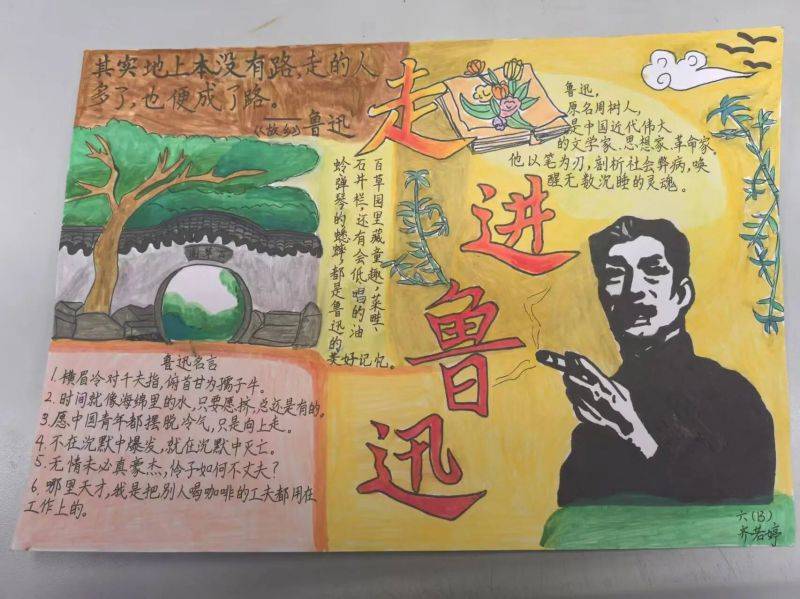 其实地上本没有路,走的人
多了,也便成了路。
——《故乡》鲁迅
走进鲁迅
鲁迅,
原名周树人,
是中国近代伟大
的文学家、思想家、革命家。
他以笔为刃,剖析社会弊病,唤
醒无数沉睡的灵魂。
百草园里藏童趣,菜畦、
石井栏,还有会低唱的油
蛉弹琴的蟋蟀,都是鲁迅的
美好记忆。
鲁迅名言
1. 横眉冷对千夫指,俯首甘为孺子牛。
2. 时间就像海绵里的水,只要愿挤,总还是有的。
3. 愿中国青年都摆脱冷气,只是向上走。
4. 不在沉默中爆发,就在沉默中灭亡。
5. 无情未必真豪杰,怜子如何不丈夫?
6. 哪里天才,我是把别人喝咖啡的工夫都用在
工作上的。
六(B)
齐若婷